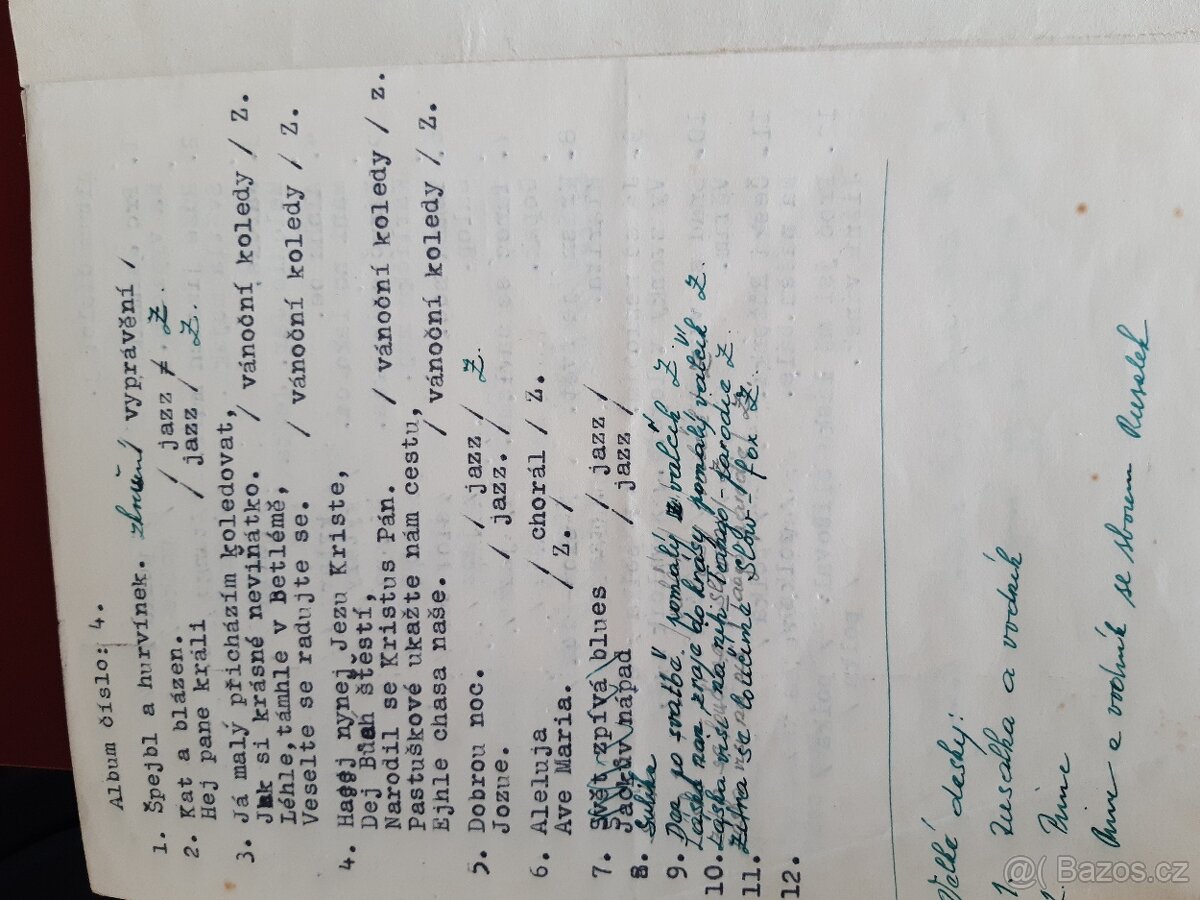 Album číslo: 4.
1. Špejbl a hurvínek. zkrušený vyprávění /
2. Kat a blázen. / jazz / Z.
Hej pane králi / jazz / Z.
3. Já malý přicházím koledovat,
Jak si krásné neviňátko. / vánoční koledy / Z.
Léhle, támhle v Betlémě,
Veselte se radujte se. / vánoční koledy / Z.
4. Haejj nynej Jezu Kriste,
Dej Bůah štěstí,
Narodil se Kristus Pán. / vánoční koledy / z.
Pastuškové ukažte nám cestu,
Ejhle chasa naše. / vánoční koledy / Z.
5. Dobrou noc. / jazz / Z
Jozue. / jazz. /
6. Aleluja / chorál / Z.
Ave Maria. / Z. /
7. Svět zpívá blues / jazz /
Jackův nápad / jazz /
8.
9. po svatbě pomalý valčík Z
10. do krásy pomalý valčík Z.
11. se loučíme slow-fox Z
12.
Velké desky:
1. Rusalka a vodník
Mime
Mime a vodník se sborem Rusalek
© Bazos.cz